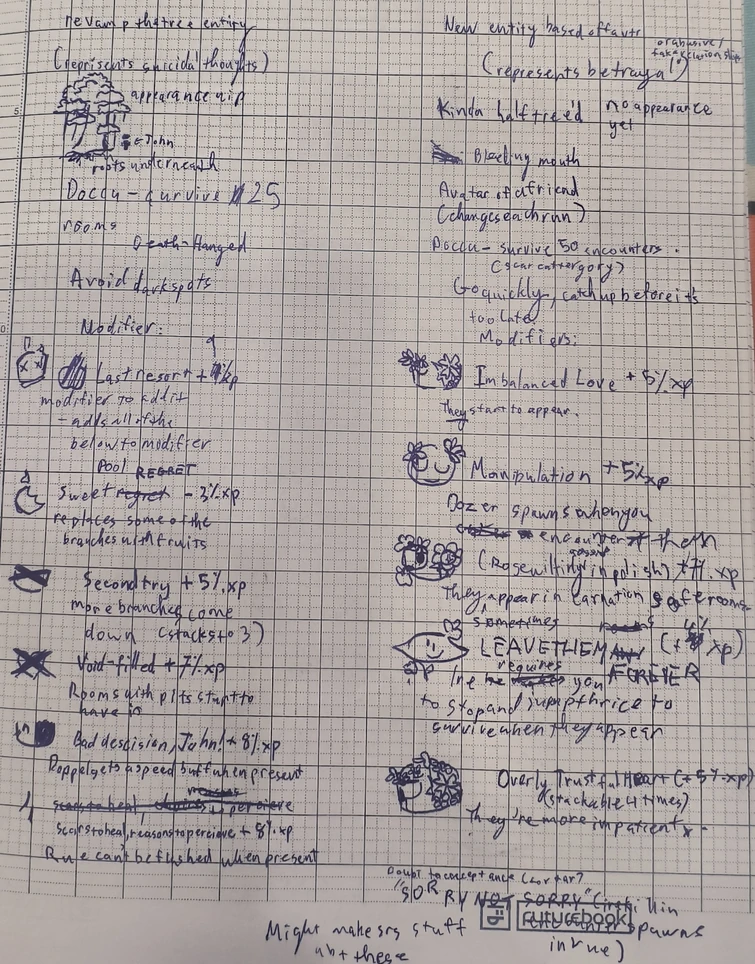 revamp the tree entity
(reprisents suicidal thoughts)
appearance wip
← John
roots underneath
Docdu - survive 25
rooms
Death - Hanged
Avoid dark spots
Modifier:
Last resort + %xp
modifier to
- adds all of the
below to modifier
pool
Sweet REGRET - 3%xp
replaces some of the
branches with fruits
Second try + 5%.xp
more branches come
down (stacks to 3)
Void-filled + 7%xp
Rooms with pits start to
have
Bad descision, John! + 8%.xp
Doppel gets a speed buff when present
scars to heal, reasons to percieve + 8%.xp
Rue can't be fushed when present
New entity based off
or abusive/
fake relationships
(represents betrayal)
Kinda half tree'd
no appearance
yet
Bleeding mouth
Avatar of a friend
(changes each run)
Docdu - survive 50 encounters.
(scar cattergory)
Go quickly, catch up before it's
too late.
Modifiers:
Imbalanced Love + 5%.xp
They start to appear.
Manipulation + 5%xp
Dozer spawns when you
encounter them
(Rose wilting in polish) + 7%.xp
They sometimes appear in carnation safe rooms
LEAVE THEM FOREVER (+ 4% xp)
requires you
to stop and jump thrice to
survive when they appear
Overly Trustful Heart (+ 5%.xp)
(stackable 4 times)
They're more impatient
"SORRY NOT SORRY"
futurebook
spawns
in rue)
Might make srs stuff
abt these